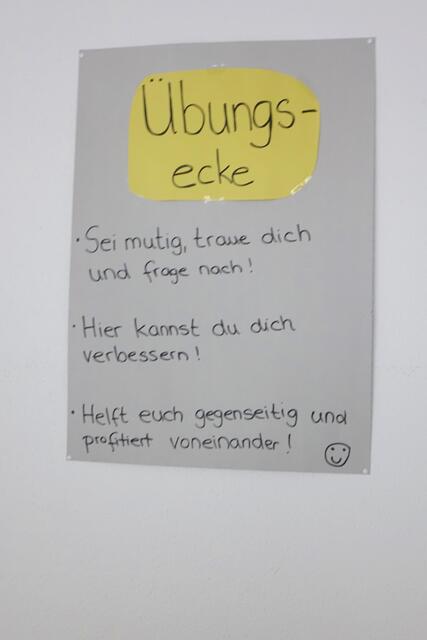 Übungs-
ecke
· Sei mutig, traue dich
und frage nach!
· Hier kannst du dich
verbessern!
· Helft euch gegenseitig und
profitiert voneinander!